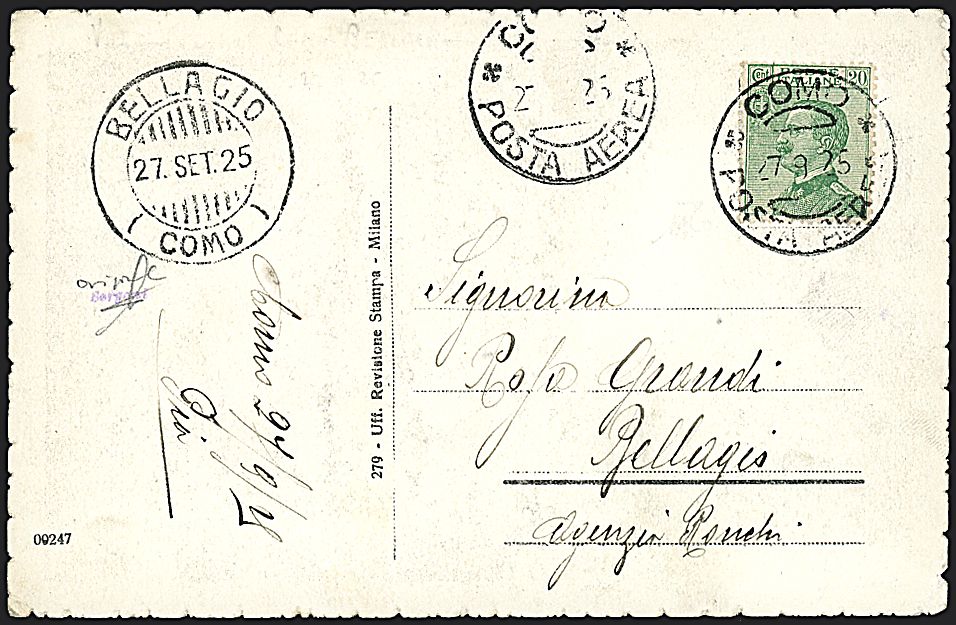 BELLAGIO
27. SET. 25
( COMO )
CO
25
* POSTA AEREA *
Cmi POSTE ITALIANE 20
COMO
27.9.25
* POSTA AEREA *
279 - Uff. Revisione Stampa - Milano
Signorina
Rosa Grandi
Bellagio
Agenzia Ronchi
Como 27/9/25
00247